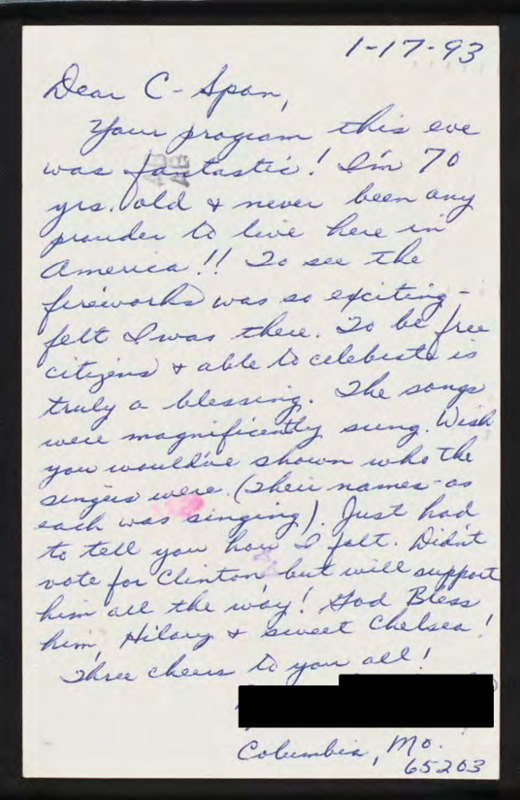 1-17-93
Dear C-Span,
Your program this eve
was fantastic! I'm 70
yrs. old & never been any
prouder to live here in
America!! To see the
fireworks was so exciting -
felt I was there. To be free
citizens & able to celebrate is
truly a blessing. The songs
were magnificently sung. Wish
you would've shown who the
singers were. (Their names - as
each was singing). Just had
to tell you how I felt. Didn't
vote for Clinton but will support
him all the way! God Bless
him, Hilary & sweet Chelsea!
Three cheers to you all!
Columbia, Mo.
65203